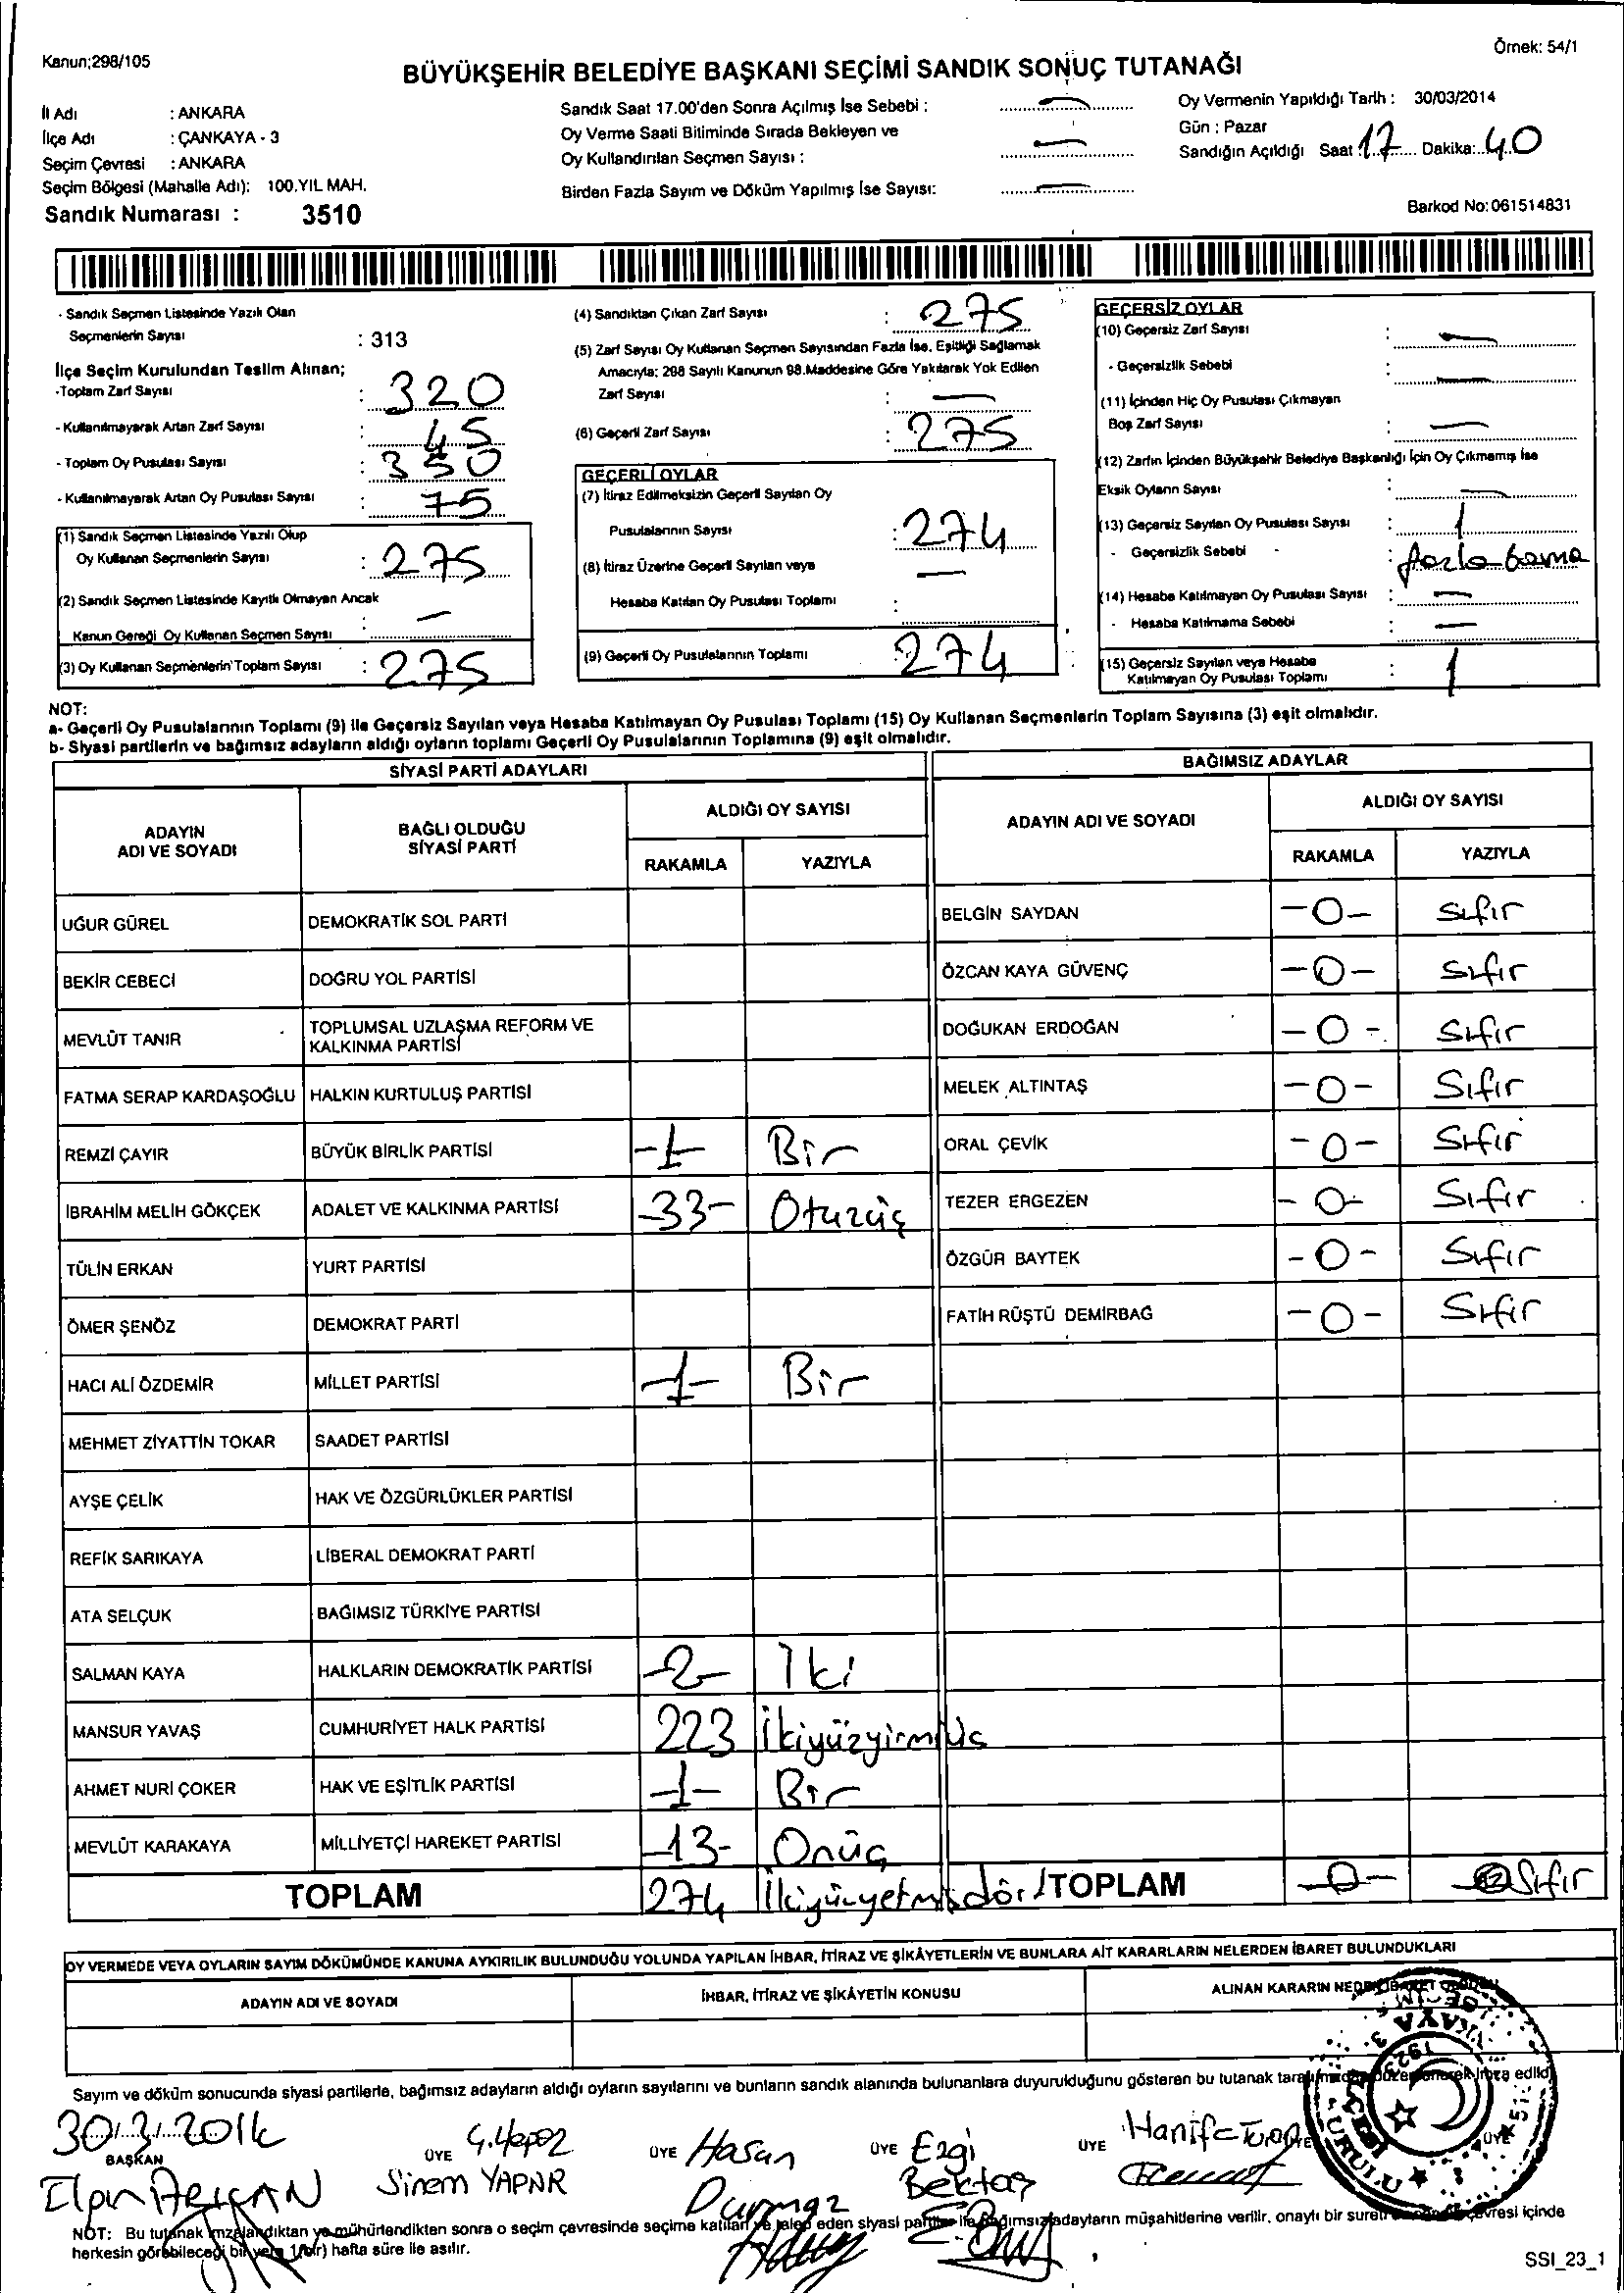 Kanun;298/105
Örnek: 54/1
BÜYÜKŞEHİR BELEDİYE BAŞKANI SEÇİMİ SANDIK SONUÇ TUTANAĞI
İl Adı : ANKARA
İlçe Adı : ÇANKAYA - 3
Seçim Çevresi : ANKARA
Seçim Bölgesi (Mahalle Adı): 100.YIL MAH.
Sandık Numarası : 3510
Sandık Saat 17.00'den Sonra Açılmış İse Sebebi : —
Oy Verme Saati Bitiminde Sırada Bekleyen ve
Oy Kullandırılan Seçmen Sayısı : —
Birden Fazla Sayım ve Döküm Yapılmış İse Sayısı: —
Oy Vermenin Yapıldığı Tarih : 30/03/2014
Gün : Pazar
Sandığın Açıldığı Saat 17 Dakika: 40
Barkod No:061514831
- Sandık Seçmen Listesinde Yazılı Olan
Seçmenlerin Sayısı : 313
İlçe Seçim Kurulundan Teslim Alınan;
-Toplam Zarf Sayısı : 320
- Kullanılmayarak Artan Zarf Sayısı : 45
- Toplam Oy Pusulası Sayısı : 350
- Kullanılmayarak Artan Oy Pusulası Sayısı : 75
(1) Sandık Seçmen Listesinde Yazılı Olup
Oy Kullanan Seçmenlerin Sayısı : 275
(2) Sandık Seçmen Listesinde Kayıtlı Olmayan Ancak
Kanun Gereği Oy Kullanan Seçmen Sayısı : —
(3) Oy Kullanan Seçmenlerin Toplam Sayısı : 275
(4) Sandıktan Çıkan Zarf Sayısı : 275
(5) Zarf Sayısı Oy Kullanan Seçmen Sayısından Fazla İse, Eşitliği Sağlamak
Amacıyla; 298 Sayılı Kanunun 98.Maddesine Göre Yakılarak Yok Edilen
Zarf Sayısı : —
(6) Geçerli Zarf Sayısı : 275
GEÇERLİ OYLAR
(7) İtiraz Edilmeksizin Geçerli Sayılan Oy
Pusulalarının Sayısı : 274
(8) İtiraz Üzerine Geçerli Sayılan veya —
Hesaba Katılan Oy Pusulası Toplamı :
(9) Geçerli Oy Pusulalarının Toplamı : 274
GEÇERSİZ OYLAR
(10) Geçersiz Zarf Sayısı : —
- Geçersizlik Sebebi : —
(11) İçinden Hiç Oy Pusulası Çıkmayan
Boş Zarf Sayısı : —
(12) Zarfın İçinden Büyükşehir Belediye Başkanlığı İçin Oy Çıkmamış İse
Eksik Oyların Sayısı : —
(13) Geçersiz Sayılan Oy Pusulası Sayısı : 1
- Geçersizlik Sebebi - : fazla basma
(14) Hesaba Katılmayan Oy Pusulası Sayısı : —
- Hesaba Katılmama Sebebi : —
(15) Geçersiz Sayılan veya Hesaba
Katılmayan Oy Pusulası Toplamı : 1
NOT:
a- Geçerli Oy Pusulalarının Toplamı (9) ile Geçersiz Sayılan veya Hesaba Katılmayan Oy Pusulası Toplamı (15) Oy Kullanan Seçmenlerin Toplam Sayısına (3) eşit olmalıdır.
b- Siyasi partilerin ve bağımsız adayların aldığı oyların toplamı Geçerli Oy Pusulalarının Toplamına (9) eşit olmalıdır.
SİYASİ PARTİ ADAYLARI
ADAYIN ADI VE SOYADI
BAĞLI OLDUĞU SİYASİ PARTİ
ALDIĞI OY SAYISI
RAKAMLA YAZIYLA
UĞUR GÜREL DEMOKRATİK SOL PARTİ
BEKİR CEBECİ DOĞRU YOL PARTİSİ
MEVLÜT TANIR TOPLUMSAL UZLAŞMA REFORM VE
KALKINMA PARTİSİ
FATMA SERAP KARDAŞOĞLU HALKIN KURTULUŞ PARTİSİ
REMZİ ÇAYIR BÜYÜK BİRLİK PARTİSİ -1- Bir
İBRAHİM MELİH GÖKÇEK ADALET VE KALKINMA PARTİSİ -33- Otuzüç
TÜLİN ERKAN YURT PARTİSİ
ÖMER ŞENÖZ DEMOKRAT PARTİ
HACI ALİ ÖZDEMİR MİLLET PARTİSİ -1- Bir
MEHMET ZİYATTİN TOKAR SAADET PARTİSİ
AYŞE ÇELİK HAK VE ÖZGÜRLÜKLER PARTİSİ
REFİK SARIKAYA LİBERAL DEMOKRAT PARTİ
ATA SELÇUK BAĞIMSIZ TÜRKİYE PARTİSİ
SALMAN KAYA HALKLARIN DEMOKRATİK PARTİSİ -2- İki
MANSUR YAVAŞ CUMHURİYET HALK PARTİSİ 223 İkiyüzyirmiüç
AHMET NURİ ÇOKER HAK VE EŞİTLİK PARTİSİ -1- Bir
MEVLÜT KARAKAYA MİLLİYETÇİ HAREKET PARTİSİ -13- Onüç
TOPLAM 274 İkiyüzyetmişdört
BAĞIMSIZ ADAYLAR
ADAYIN ADI VE SOYADI
ALDIĞI OY SAYISI
RAKAMLA YAZIYLA
BELGİN SAYDAN -0- Sıfır
ÖZCAN KAYA GÜVENÇ -0- Sıfır
DOĞUKAN ERDOĞAN -0- Sıfır
MELEK ALTINTAŞ -0- Sıfır
ORAL ÇEVİK -0- Sıfır
TEZER ERGEZEN -0- Sıfır
ÖZGÜR BAYTEK -0- Sıfır
FATİH RÜŞTÜ DEMİRBAĞ -0- Sıfır
TOPLAM -0- Sıfır
OY VERMEDE VEYA OYLARIN SAYIM DÖKÜMÜNDE KANUNA AYKIRILIK BULUNDUĞU YOLUNDA YAPILAN İHBAR, İTİRAZ VE ŞİKÂYETLERİN VE BUNLARA AİT KARARLARIN NELERDEN İBARET BULUNDUKLARI
ADAYIN ADI VE SOYADI İHBAR, İTİRAZ VE ŞİKÂYETİN KONUSU ALINAN KARARIN
Sayım ve döküm sonucunda siyasi partilerle, bağımsız adayların aldığı oyların sayılarını ve bunların sandık alanında bulunanlara duyurulduğunu gösteren bu tutanak edildi
30/3/2014
BAŞKAN ÜYE ÜYE Hasan ÜYE Ezgi ÜYE Hanife ÜYE
Sinem YAPNR Durmaz Bektaş
NOT: Bu tutanak imzalandıktan ve mühürlendikten sonra o seçim çevresinde seçime katılan ve talep eden siyasi partiler ile bağımsız adayların müşahitlerine verilir, onaylı bir sureti çevresi içinde
herkesin görebileceği bir yere 1(bir) hafta süre ile asılır.
SSI_23_1